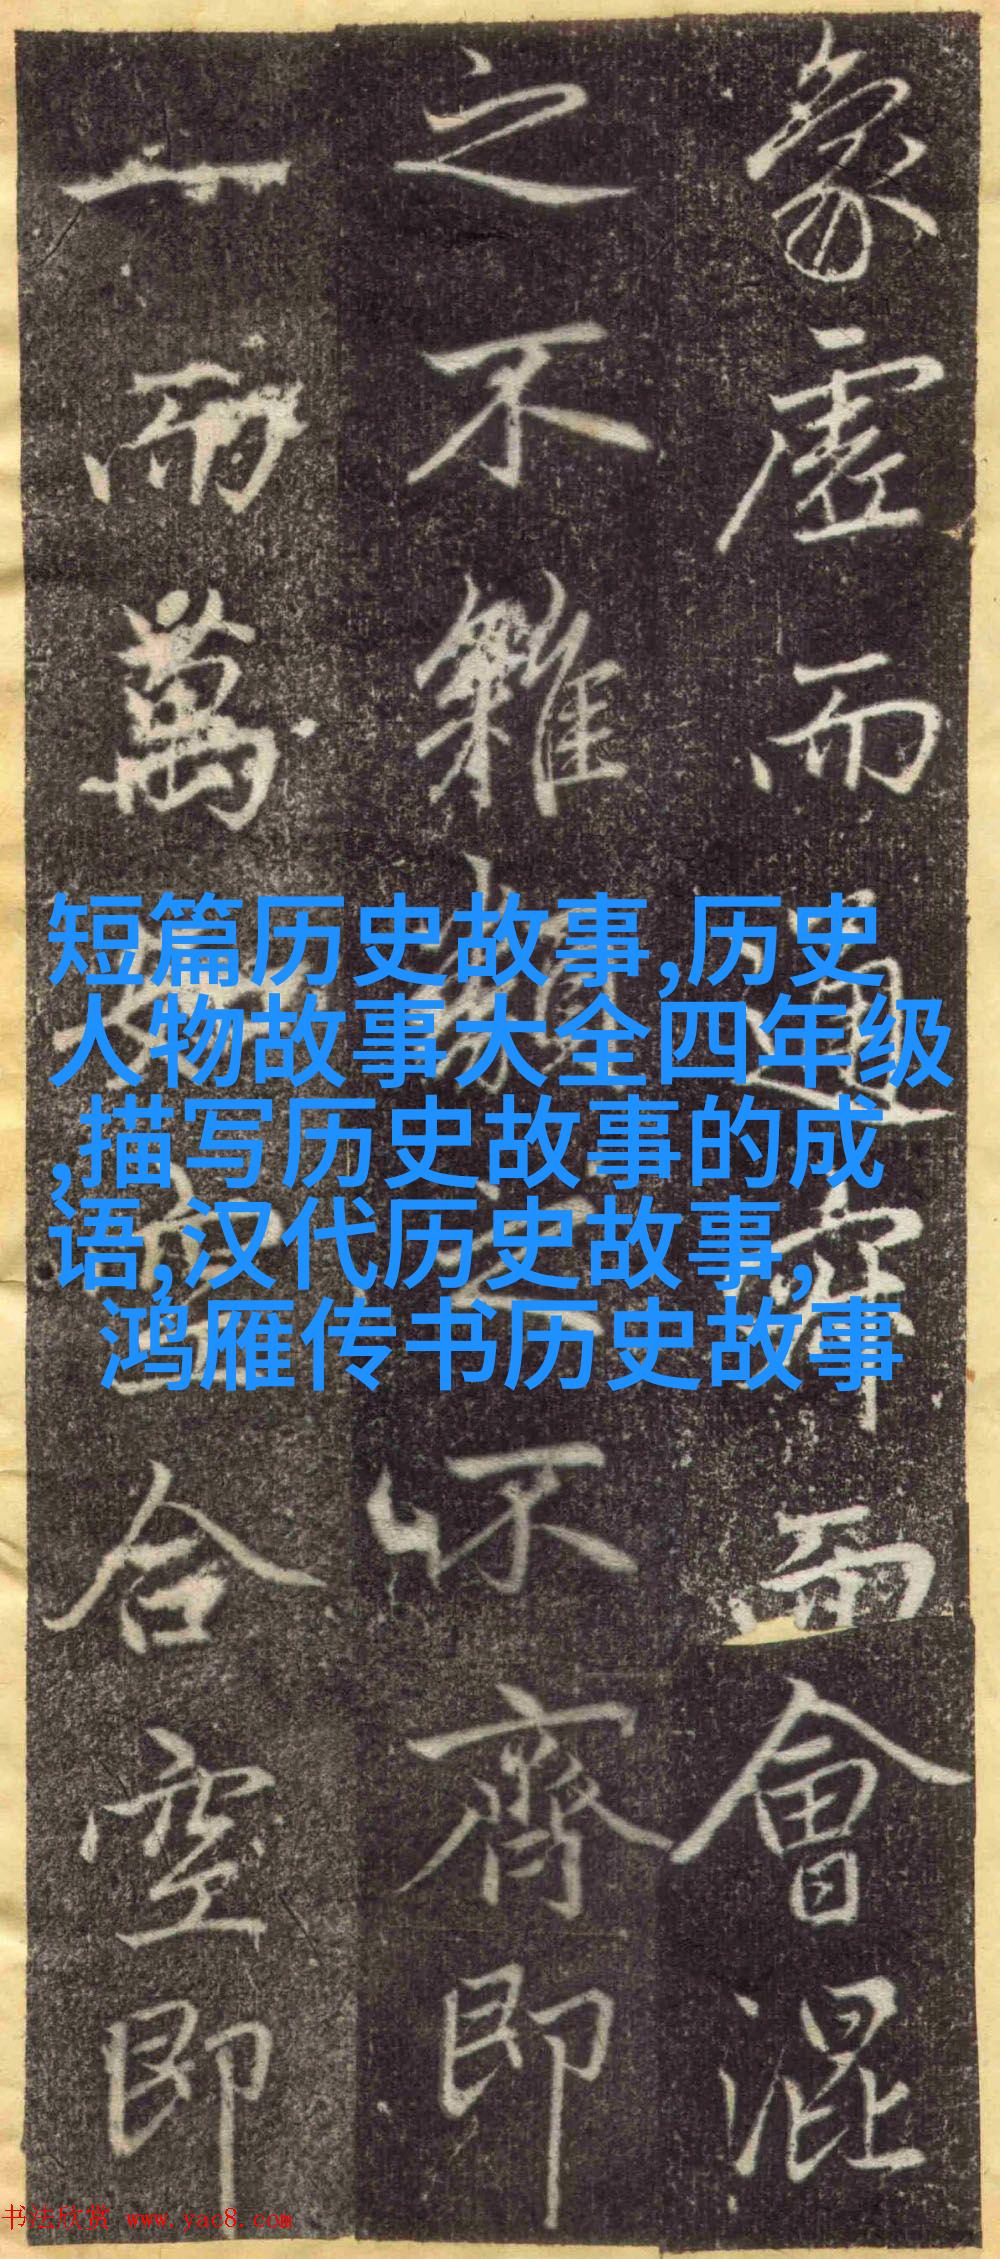 象虛而通而會混
之不雜之不齊即
一而萬合空即
短篇历史故事,历史
人物故事大全四年级
,描写历史故事的成
语,汉代历史故事,
鸿雁传书历史故事
书法欣赏 www.yac8.com